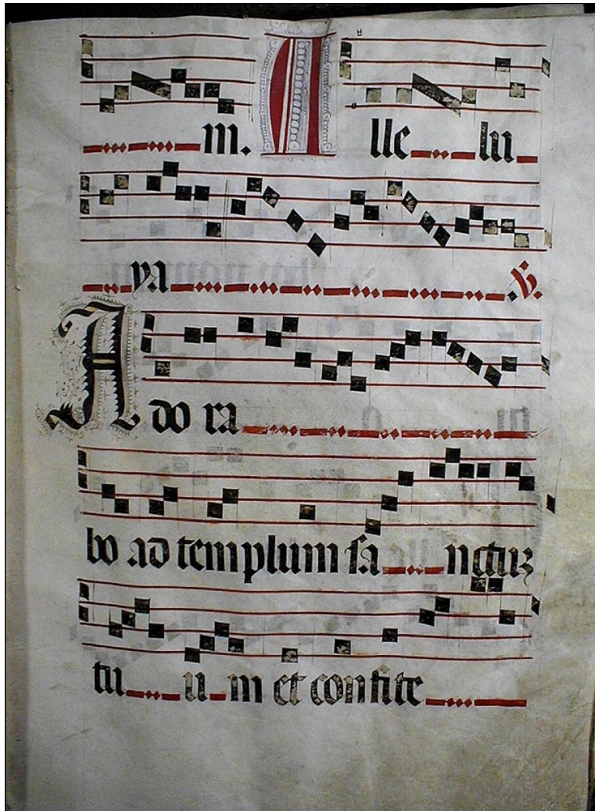 m. Alle lu
ya V.
Ado ra
bo ad templum sa nctuz
tu u m et confite